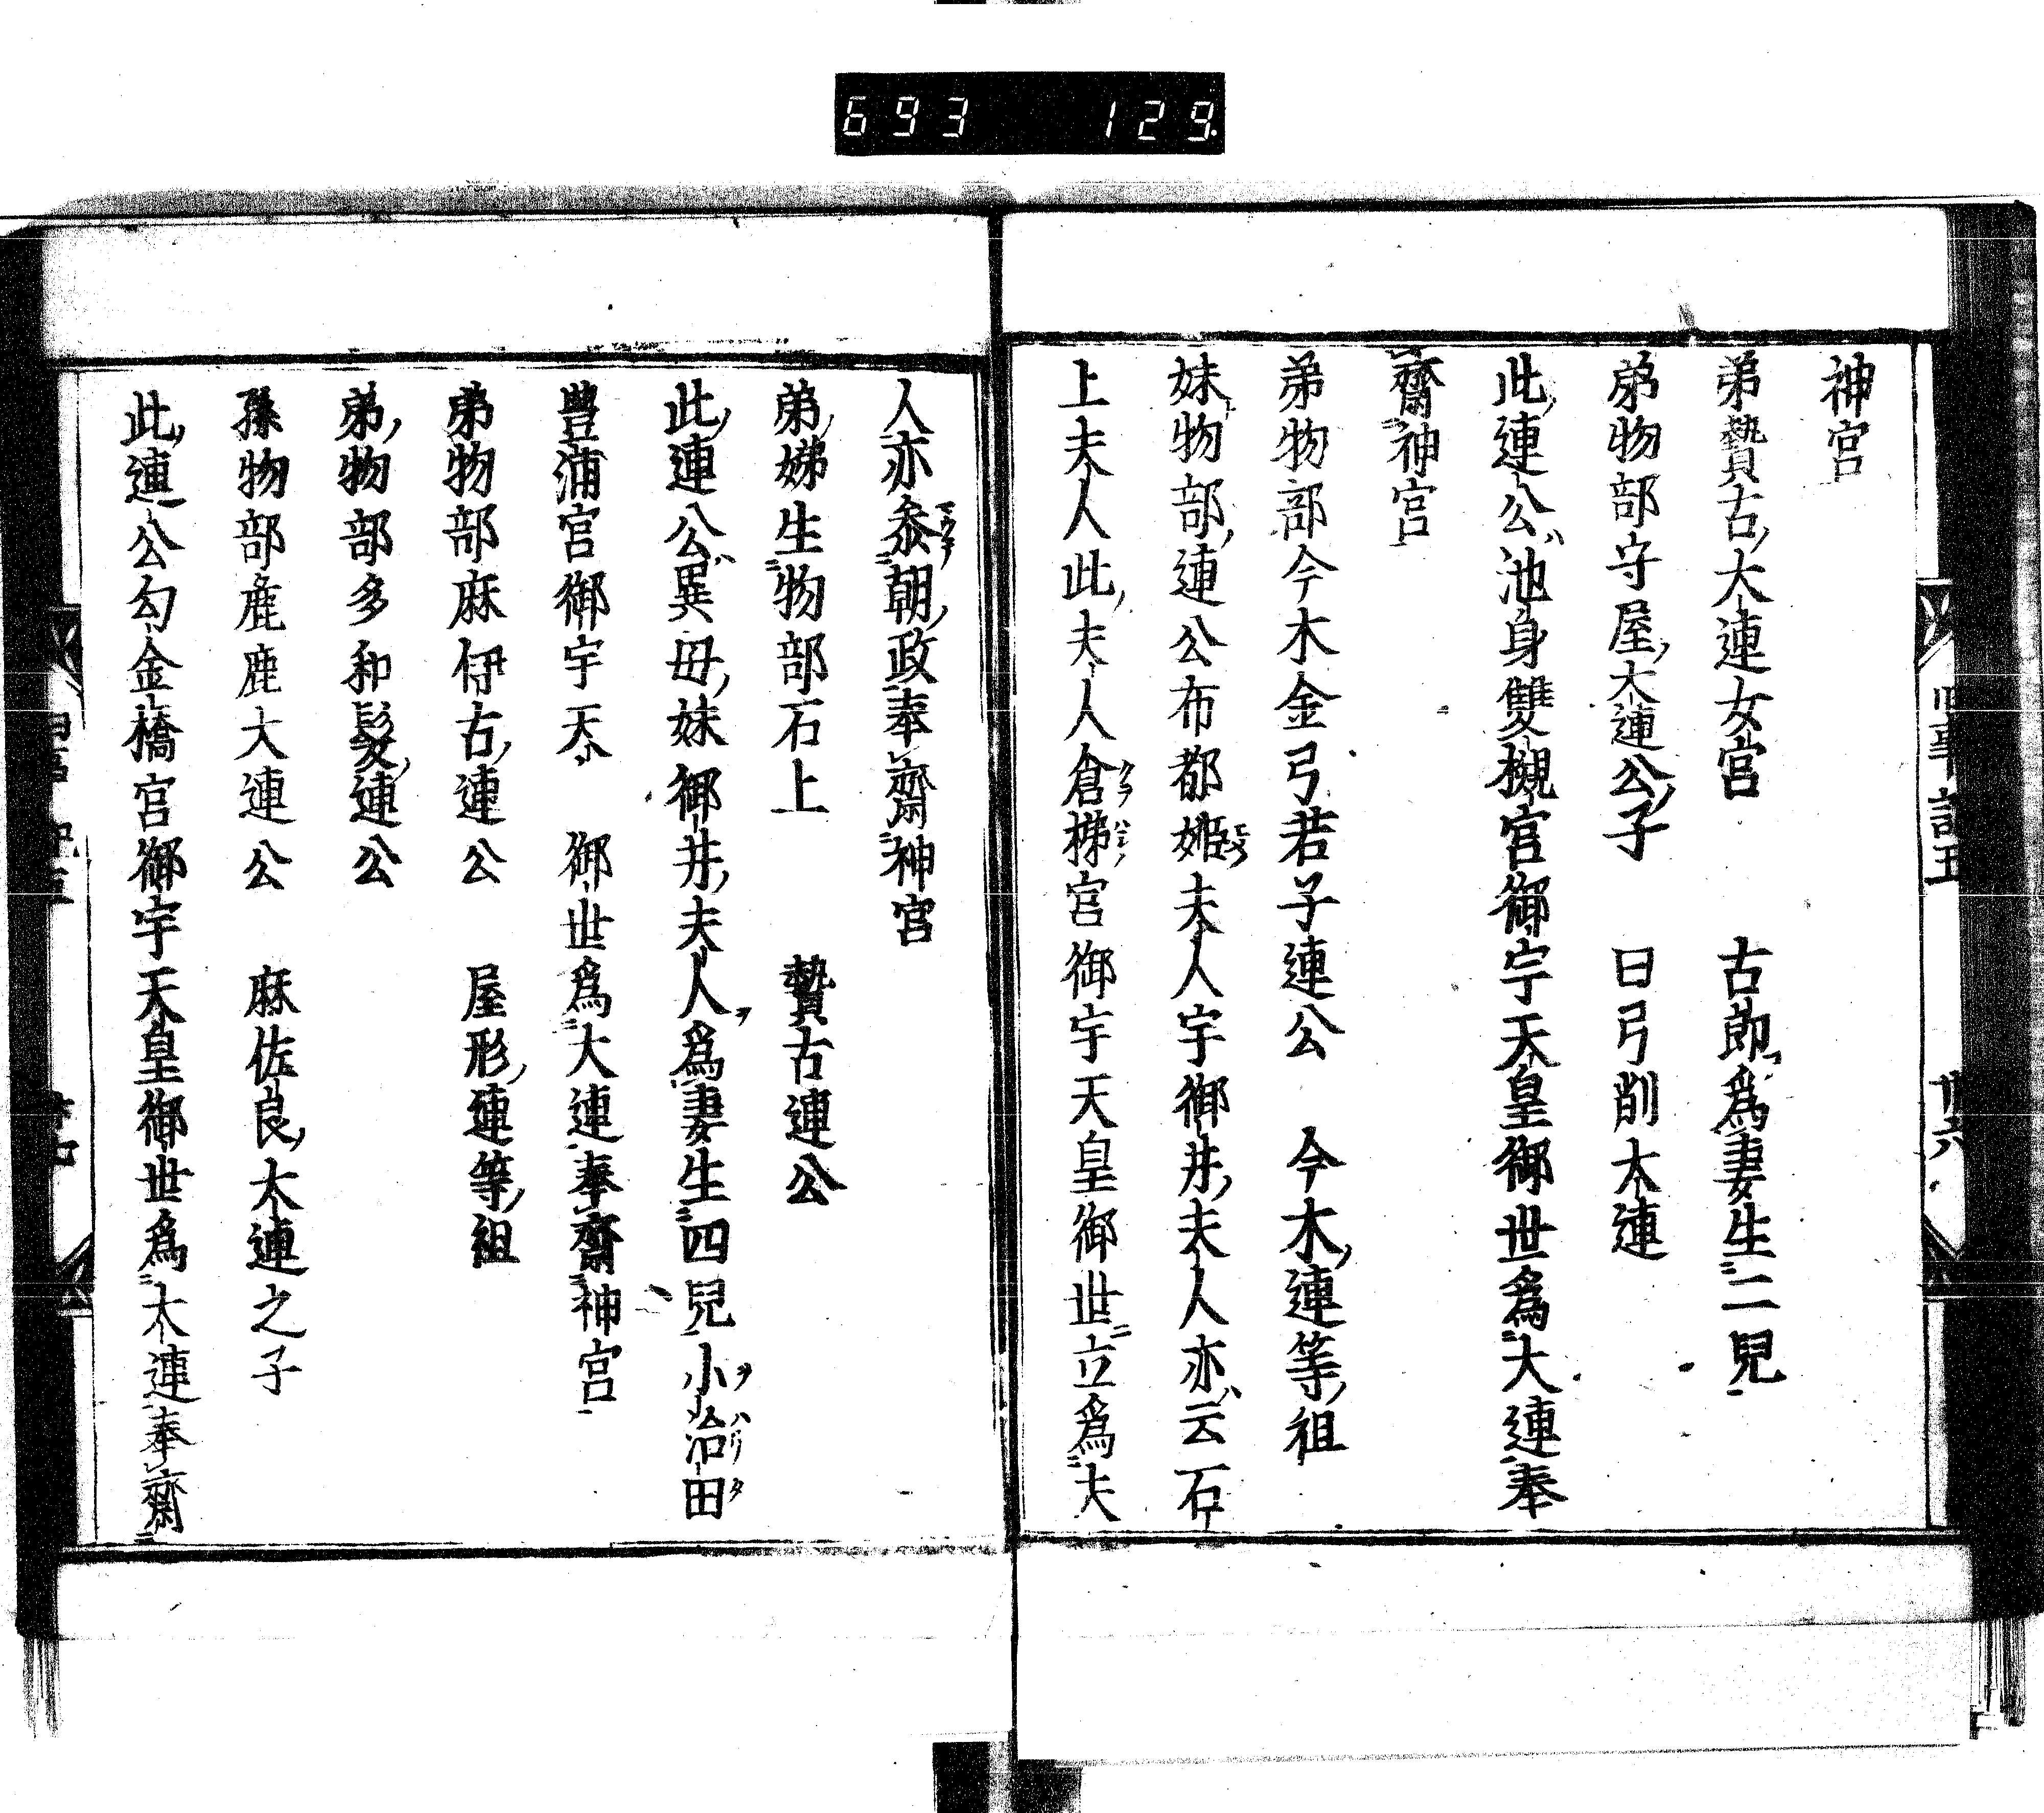 693 129
神宮
弟贄古大連女宮 古郎爲妻生二兒
弟物部守屋大連公子 曰弓削大連
此連公池身雙槻宮御宇天皇御世爲大連奉
齋神宮
弟物部今木金弓若子連公 今木連等祖
妹物部連公布都姫夫人宇御井夫人亦云石
上夫人此夫人倉梯宮御宇天皇御世立爲夫
人亦叅朝政奉齋神宮
弟娣生物部石上 贄古連公
此連公異毋妹御井夫人爲妻生四兒小治田
豐浦宮御宇天 御世爲大連奉齋神宮
弟物部麻伊古連公 屋形連等祖
弟物部多和髮連公
孫物部麁鹿大連公 麻佐良大連之子
此連公勾金橋宮御宇天皇御世爲大連奉齋